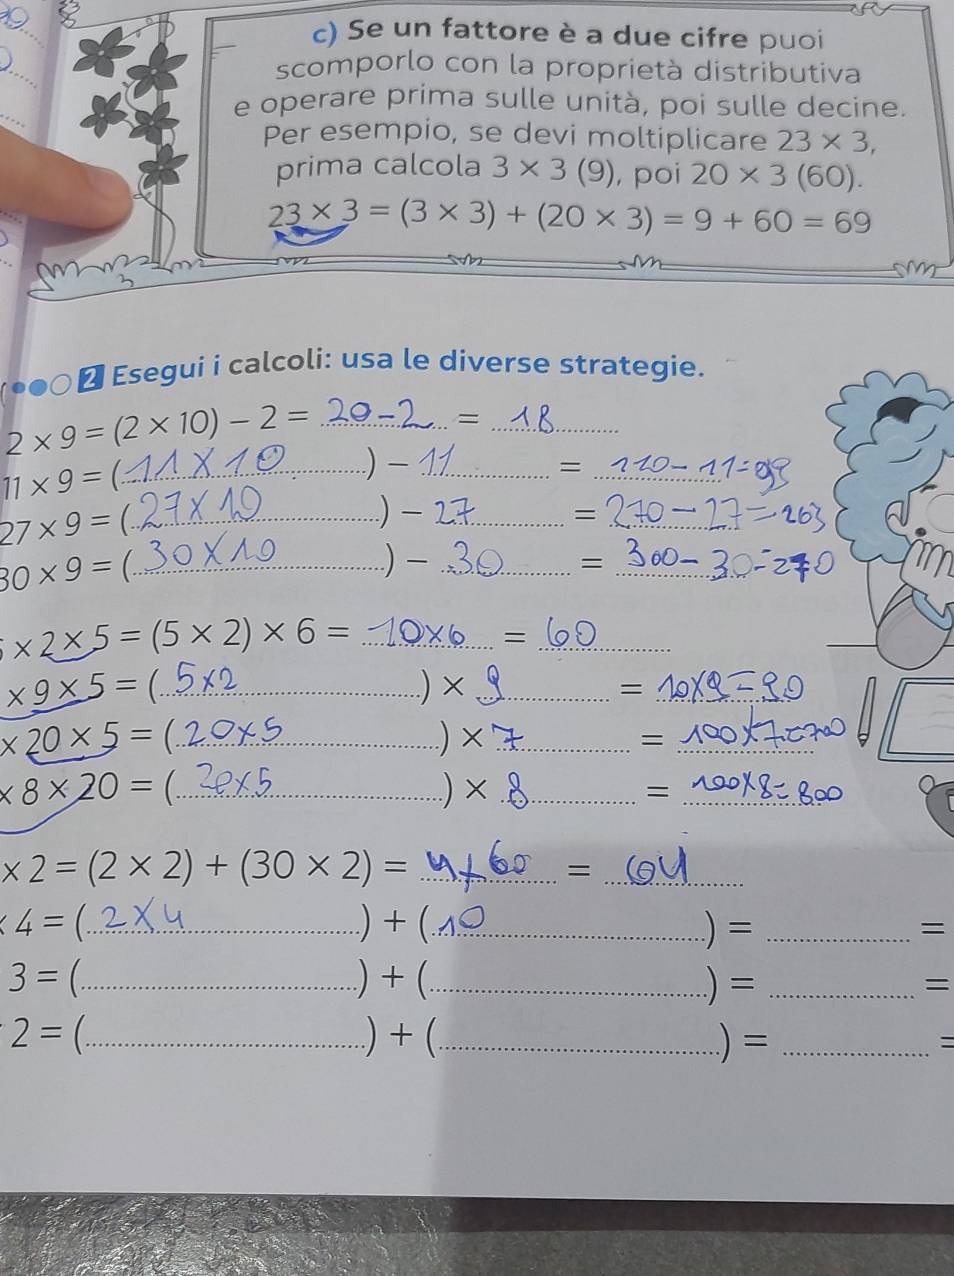 c) Se un fattore è a due cifre puoi
scomporlo con la proprietà distributiva
e operare prima sulle unità, poi sulle decine.
Per esempio, se devi moltiplicare 23 × 3,
prima calcola 3 × 3 (9), poi 20 × 3 (60).
23 × 3 = (3 × 3) + (20 × 3) = 9 + 60 = 69
2 Esegui i calcoli: usa le diverse strategie.
2 × 9 = (2 × 10) – 2 = 20-2 = 18
11 × 9 = (11 X 10) – 11 = 110-11=99
27 × 9 = (27 X 10) – 27 = 270-27=263
30 × 9 = (30 X 10) – 30 = 300-30=270
× 2 × 5 = (5 × 2) × 6 = 10x6 = 60
× 9 × 5 = (5x2) × 9 = 10x9=90
× 20 × 5 = (20x5) × 7 = 100x7=700
× 8 × 20 = (20x5) × 8 = 100x8=800
× 2 = (2 × 2) + (30 × 2) = 4+60 = 64
4 = (2X4) + (10) = =
3 = ( ) + ( ) = =
2 = ( ) + ( ) = =